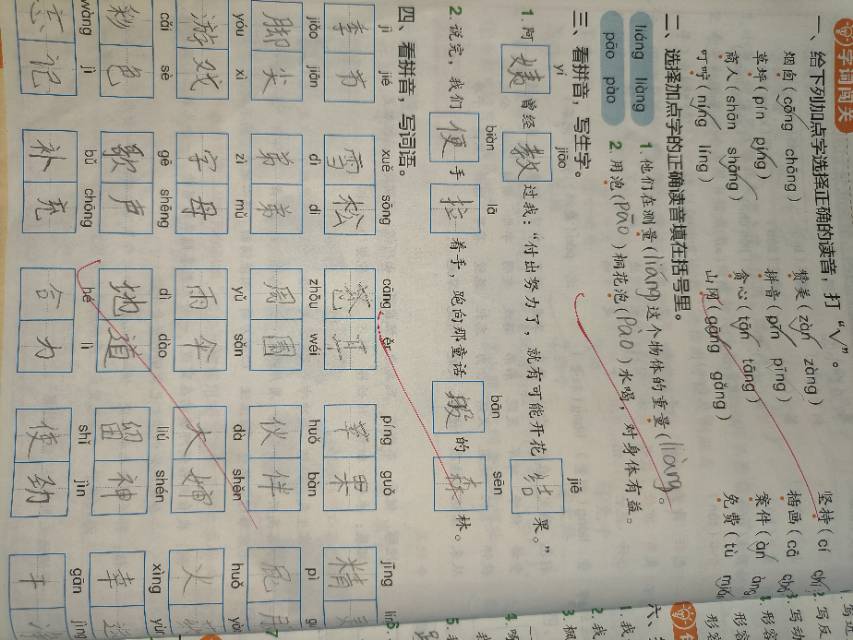 字词闯关
一、给下列加点字选择正确的读音，打“√”。
烟囱（cōng chōng） 赞美（zàn zàng） 坚持（cí chí）
草坪（pín píng） 拼音（pīn pīng） 插画（cā chā）
商人（shān shāng） 贪心（tān tāng） 案件（àn àng）
叮咛（níng líng） 山冈（gāng gǎng） 免费（tù miǎn）
二、选择加点字的正确读音填在括号里。
liáng liàng 1. 他们在测量（liáng）这个物体的重量（liàng）。
pāo pào 2. 用泡（pāo）桐花泡（pào）水喝，对身体有益。
三、看拼音，写生字。
yí jiāo jiē
1. 阿姨曾经教过我：“付出努力了，就有可能开花结果。”
biàn lā bān sēn
2. 说完，我们便手拉着手，跑向那童话般的森林。
四、看拼音，写词语。
jì jié xuě sōng cāng ěr píng guǒ jīng
季节 雪松 苍耳 苹果 精
jiǎo jiān dì di zhōu wéi huǒ bàn pì gu
脚尖 弟弟 周围 伙伴 屁股
yóu xì zì mǔ yǔ sǎn dà shěn huǒ
游戏 字母 雨伞 大婶 火
cǎi sè gē shēng dì dào liú shén xìng
彩色 歌声 地道 留神 幸
wàng jì bǔ chōng hé lì shǐ jìn gān jìng
忘记 补充 合力 使劲 干净